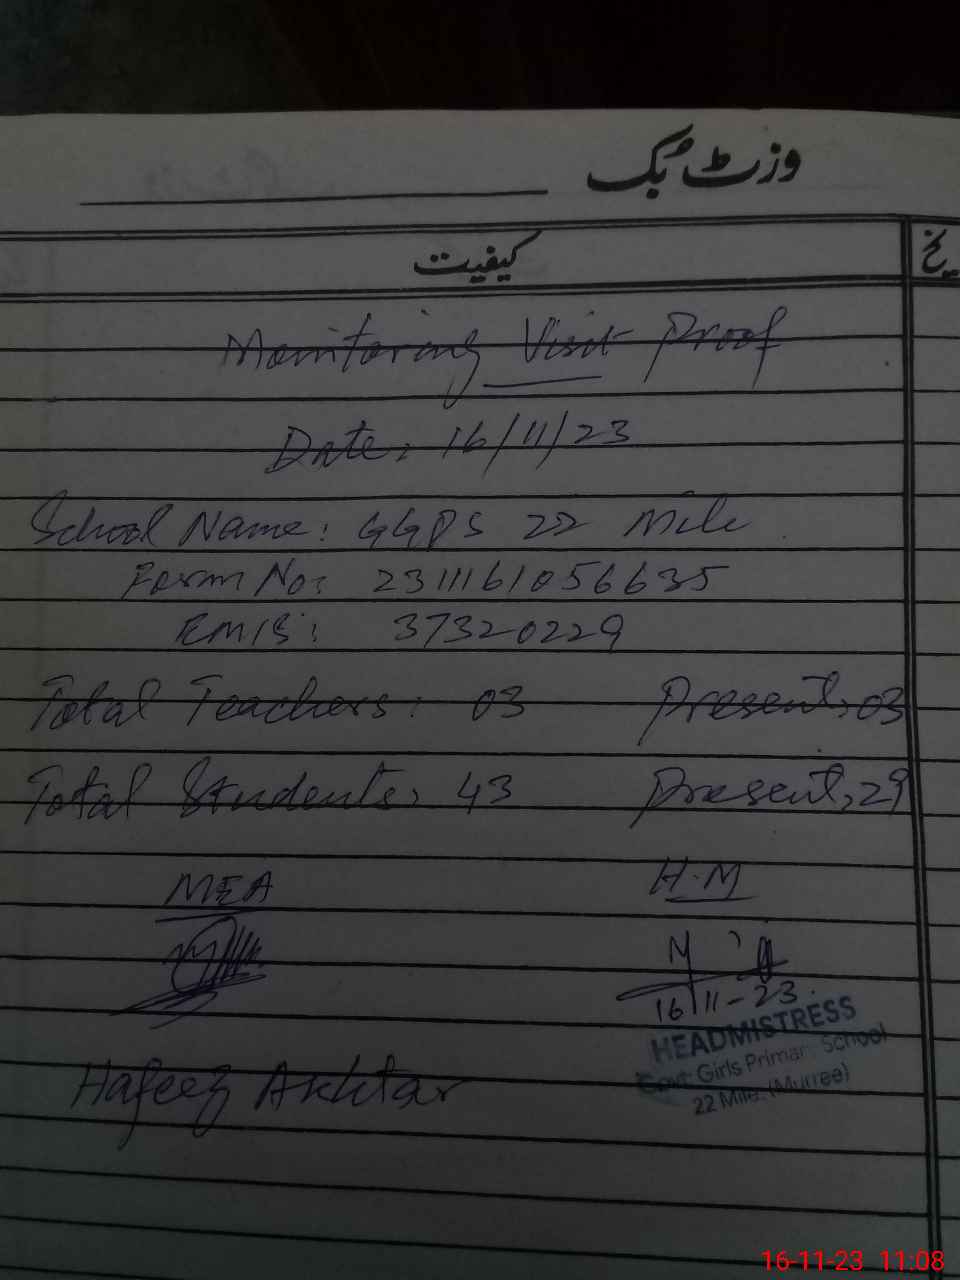 وزٹ بُک
کیفیت
Monitoring Visit Proof
Date: 16/11/23
School Name: GGPS 22 Mile
Form No: 2311161056635
EMIS: 37320229
Total Teachers: 03 Present: 03
Total Students: 43 Present: 29
MEA H.M
16/11-23
HEADMISTRESS
Govt: Girls Primary School
22 Mile. (Murree)
Hafeez Akhtar
16-11-23 11:08